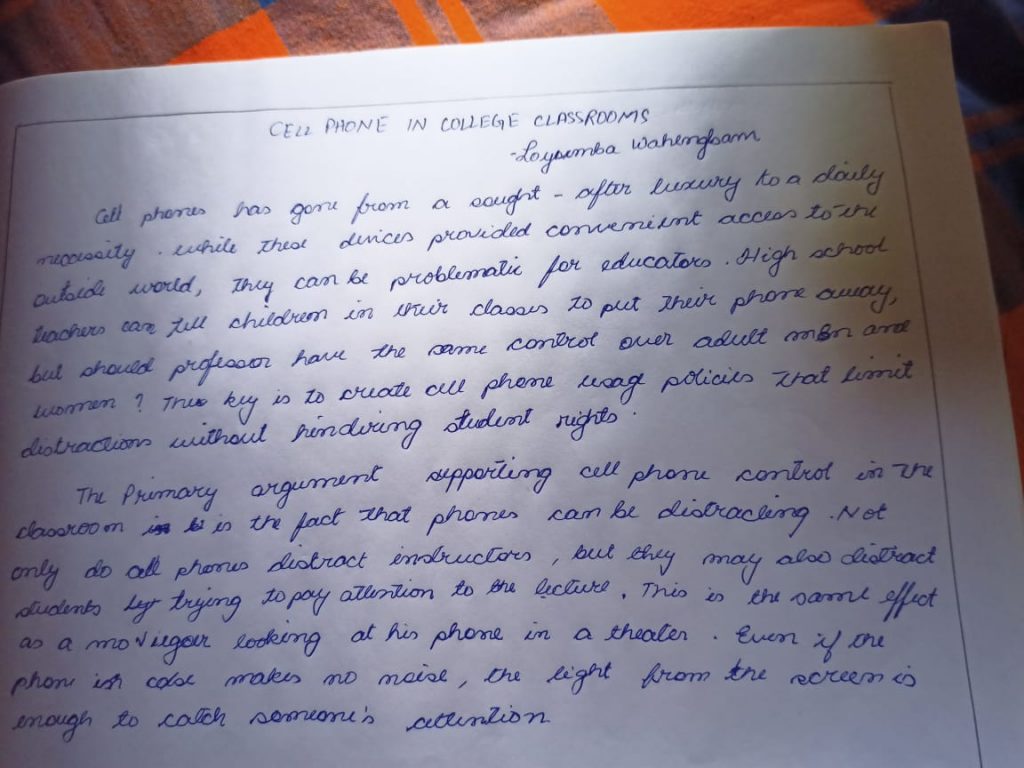 CELL PHONE IN COLLEGE CLASSROOMS
-Loyumba Wahengbam
Cell phones has gone from a sought-after luxury to a daily
necessity. while these devices provided convenient access to the
outside world, they can be problematic for educators. High school
teachers can tell children in their classes to put their phone away,
but should professor have the same control over adult men and
women? The key is to create cell phone usag policies that limit
distractions without hindering student rights.
The Primary argument supporting cell phone control in the
classroom is the fact that phones can be distracting. Not
only do cell phones distract instructors, but they may also distract
students trying to pay attention to the lecture. This is the same effect
as a moviegoer looking at his phone in a theater. Even if the
phone makes no noise, the light from the screen is
enough to catch someone's attention